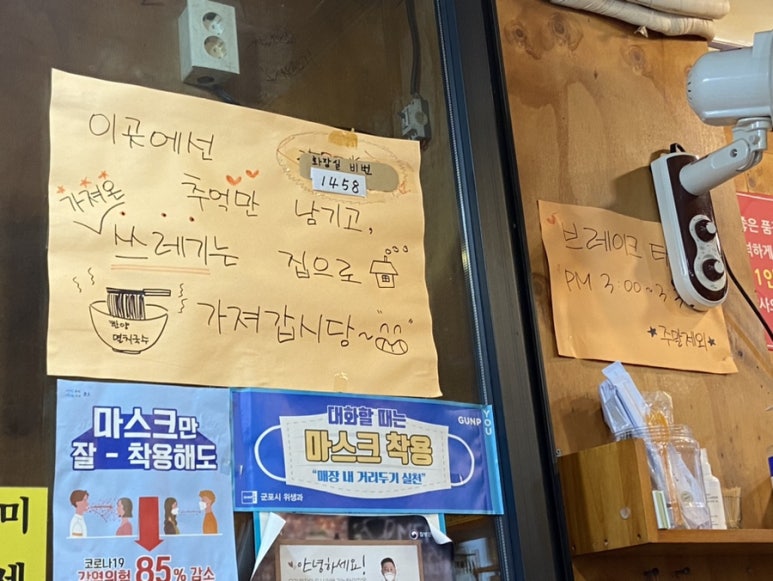 이곳에선
화장실 비번
1458
가져온
추억만 남기고,
쓰레기는 집으로
가져갑시당~
멸치국수
브레이크
PM 3:00~3:
★주말제외★
마스크만
잘 - 착용해도
코로나19
감염위험 85% 감소
대화할 때는
마스크 착용
"매장 내 거리두기 실천"
군포시 위생과
GUNP
YOU
안녕하세요!
미
세
좋은 품
1인